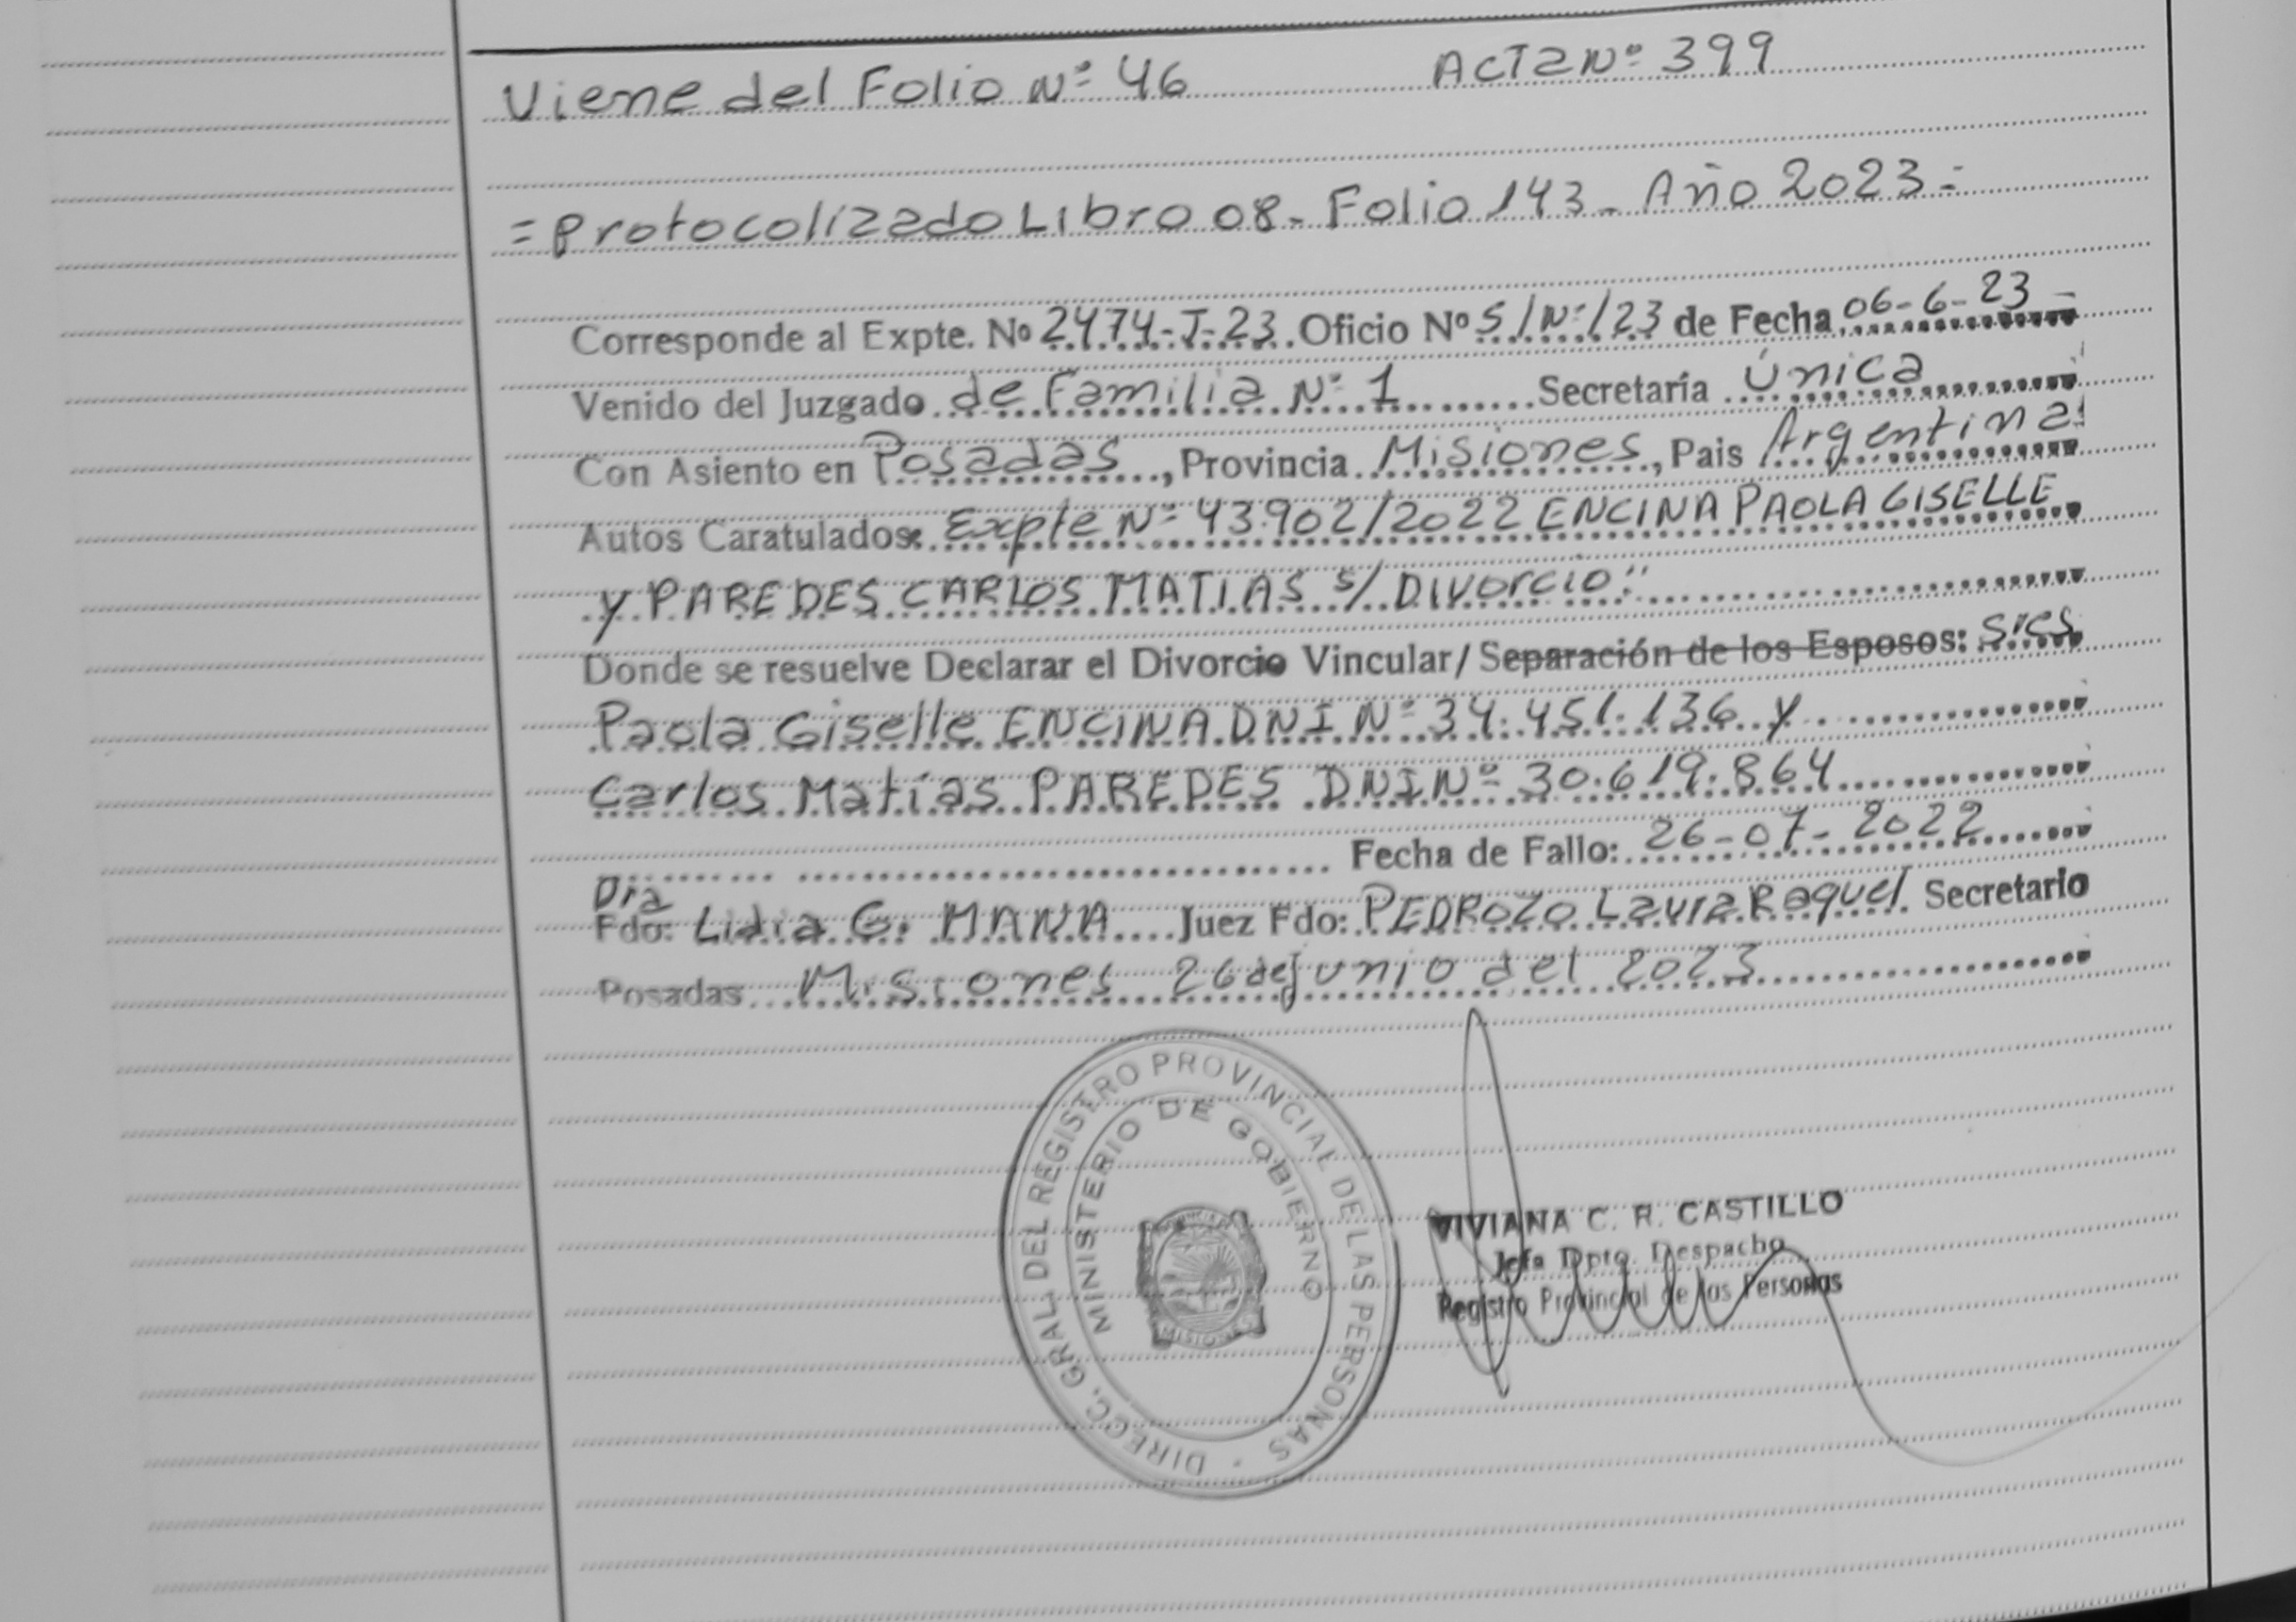 Viene del Folio Nº 46 Acta Nº 399
= Protocolizado Libro 08 - Folio 143 - Año 2023 =
Corresponde al Expte. Nº 2474-J-23 Oficio Nº S/Nº/23 de Fecha 06-6-23 -
Venido del Juzgado de Familia Nº 1 Secretaría Única
Con Asiento en Posadas, Provincia Misiones, Pais Argentina
Autos Caratulados: Expte Nº 43.902/2022 ENCINA PAOLA GISELLE
y PAREDES CARLOS MATIAS s/ Divorcio"
Donde se resuelve Declarar el Divorcio Vincular/Separación de los Esposos: sres
Paola Giselle ENCINA DNI Nº 34.451.136 y
Carlos Matías PAREDES DNI Nº 30.619.864
Fecha de Fallo: 26-07-2022
Dra
Fdo: Lidia G. MANA Juez Fdo: PEDROZO Laura Raquel Secretario
Posadas Misiones 26 de Junio del 2023
DIRECC. GRAL. DEL REGISTRO PROVINCIAL DE LAS PERSONAS
MINISTERIO DE GOBIERNO
MISIONES
VIVIANA C. R. CASTILLO
Jefa Dpto. Despacho
Registro Provincial de las Personas